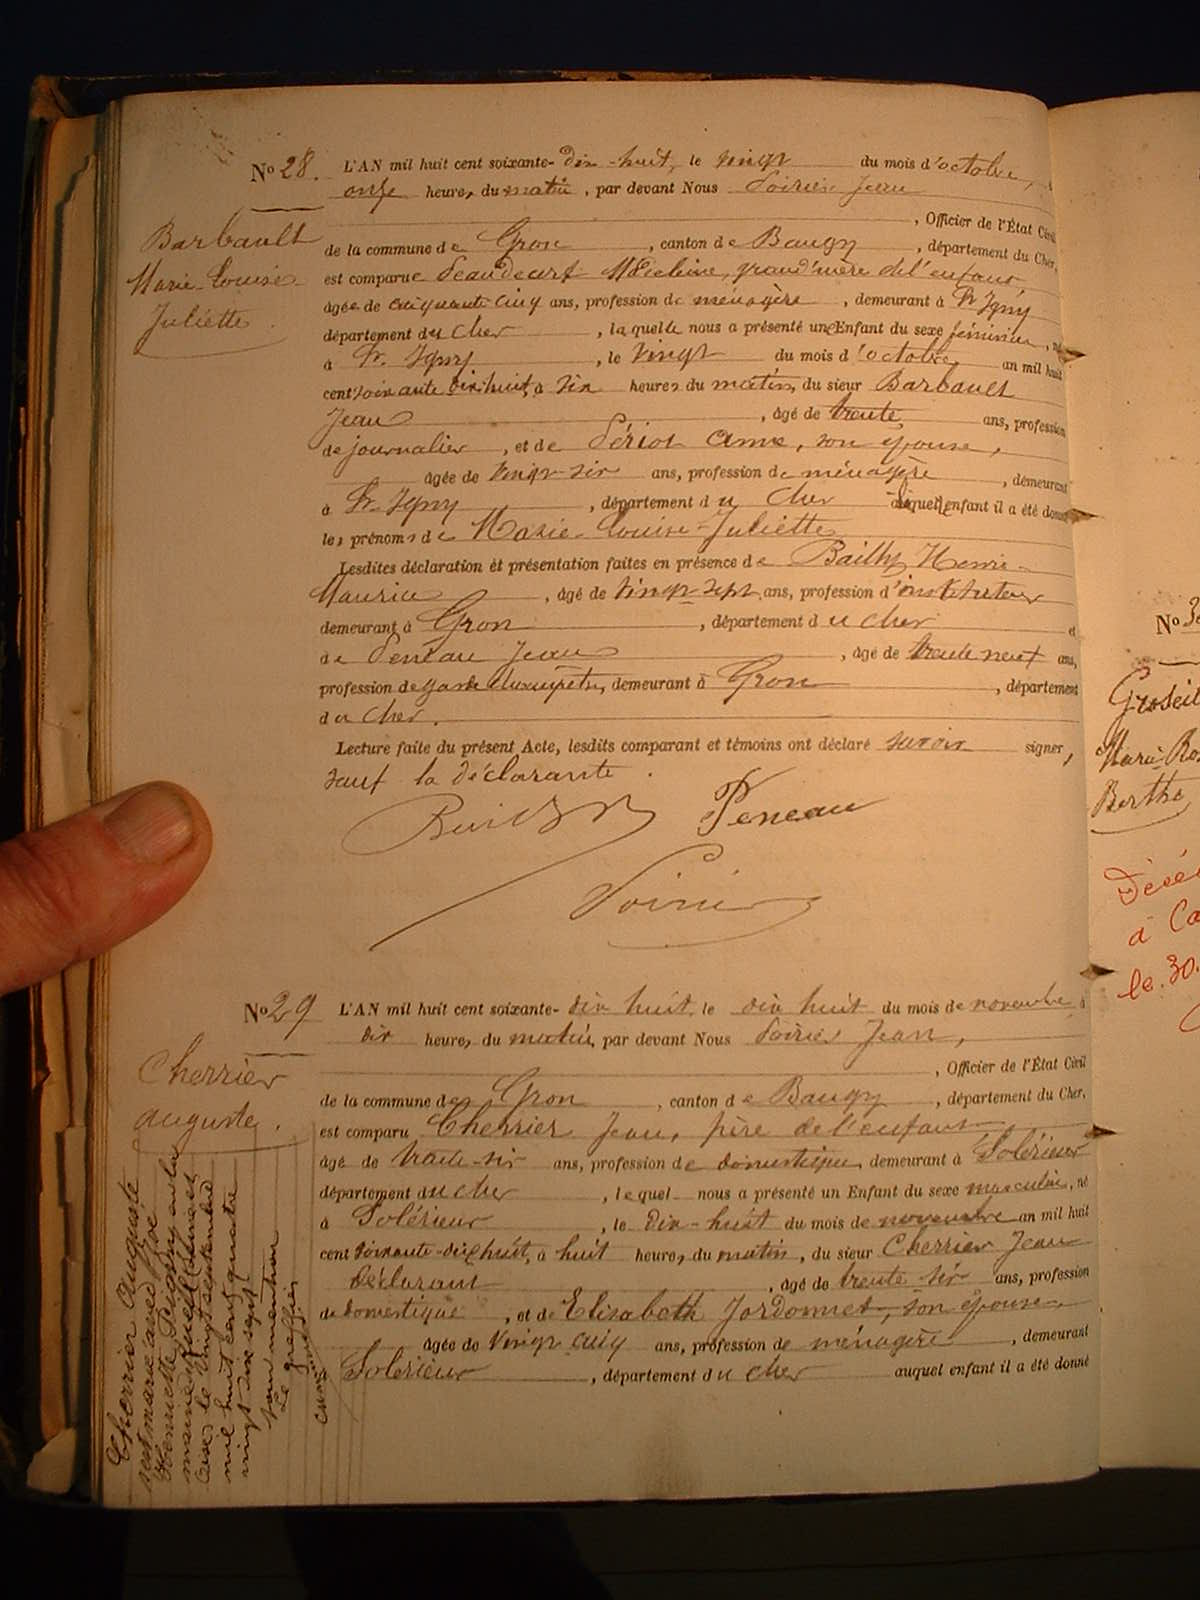 No 28.
Barbault
Marie-Louise
Juliette.
L'AN mil huit cent soixante-dix-huit, le vingt du mois d'octobre, à
onze heures du matin, par devant Nous Poirier Jean
, Officier de l'État Civil
de la commune de Gron, canton de Baugy, département du Cher,
est comparue, grand'mère de l'enfant,
âgée de cinquante cinq ans, profession de ménagère, demeurant à St Igny
département du Cher, laquelle nous a présenté une Enfant du sexe féminin, né
à St Igny, le vingt du mois d'octobre an mil huit
cent soixante dix huit, à six heures du matin, du sieur Barbault
Jean, âgé de trente ans, profession
de journalier, et de Périot Anne, son épouse,
âgée de vingt-six ans, profession de ménagère, demeurant
à St Igny, département du Cher enfant il a été donné
les prénoms de Marie-Louise-Juliette
Lesdites déclaration et présentation faites en présence de Bailly Henri-
Maurice, âgé de vingt-sept ans, profession d'instituteur
demeurant à Gron, département du Cher et
de Peneau Jean, âgé de trente neuf ans,
profession de garde champêtre, demeurant à Gron, département
du Cher.
Lecture faite du présent Acte, lesdits comparant et témoins ont déclaré savoir signer,
sauf la déclarante.
Peneau
Poirier
No 29
Cherrier
Auguste.
L'AN mil huit cent soixante-dix huit, le dix huit du mois de novembre à
dix heures du matin, par devant Nous Poirier Jean,
, Officier de l'État Civil
de la commune de Gron, canton de Baugy, département du Cher.
est comparu Cherrier Jean, père de l'enfant
âgé de trente-six ans, profession de domestique, demeurant à Solérieux
département du Cher, lequel nous a présenté un Enfant du sexe masculin, né
à Solérieux, le dix-huit du mois de novembre an mil huit
cent soixante-dix huit, à huit heures du matin, du sieur Cherrier Jean
déclarant, âgé de trente six ans, profession
de domestique, et de Elisabeth Jordonnet, son épouse,
âgée de vingt cinq ans, profession de ménagère, demeurant
Solérieux, département du Cher auquel enfant il a été donné
Cherrier Auguste
est marié avec
Henriette
mairie
le vingt septembre
mil huit cent quatre
vingt dix sept
pour mention
Le greffier
No 3
Groseil
Marie Ro
Berthe
Décé
à Ca
le 30.